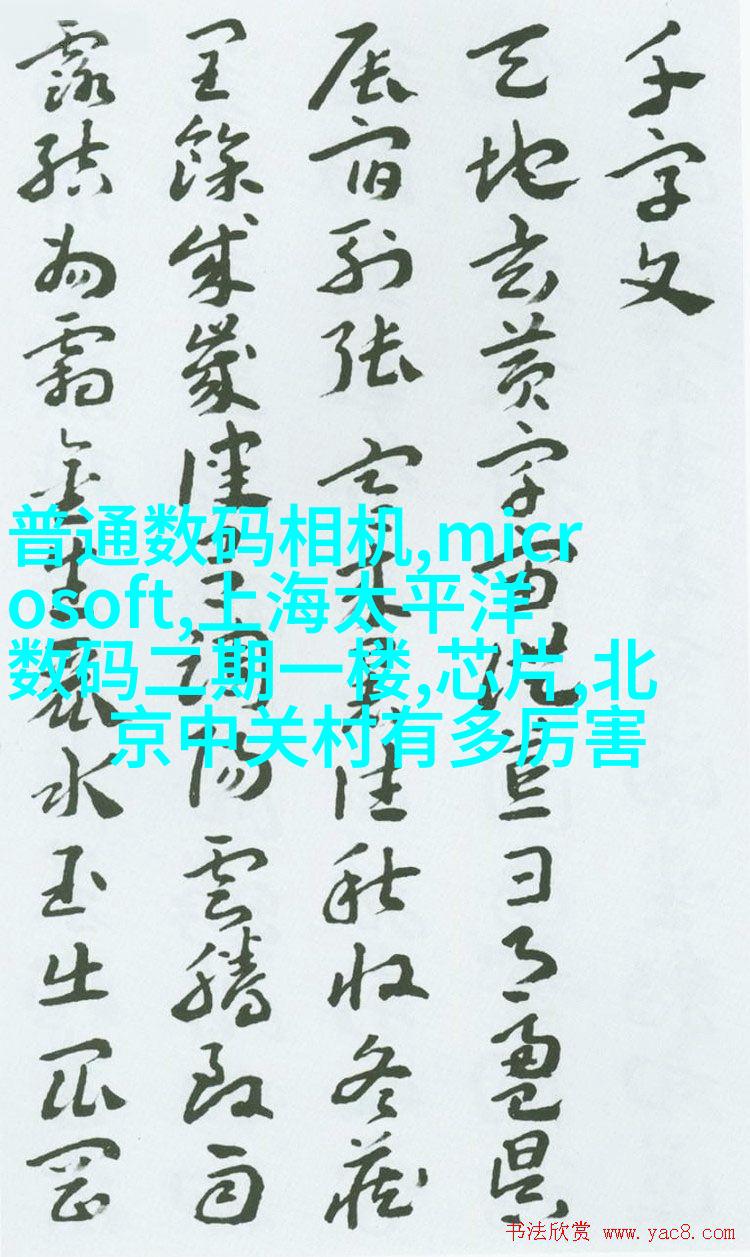 千字文
天地玄黃宇宙洪荒日月盈昃
辰宿列張寒來暑往秋收冬藏
閏餘成歲律呂調陽雲騰致雨
露結為霜金生麗水玉出崑岡
普通数码相机,micr
osoft,上海太平洋
数码二期一楼,芯片,北
京中关村有多厉害
书法欣赏 www.yac8.com